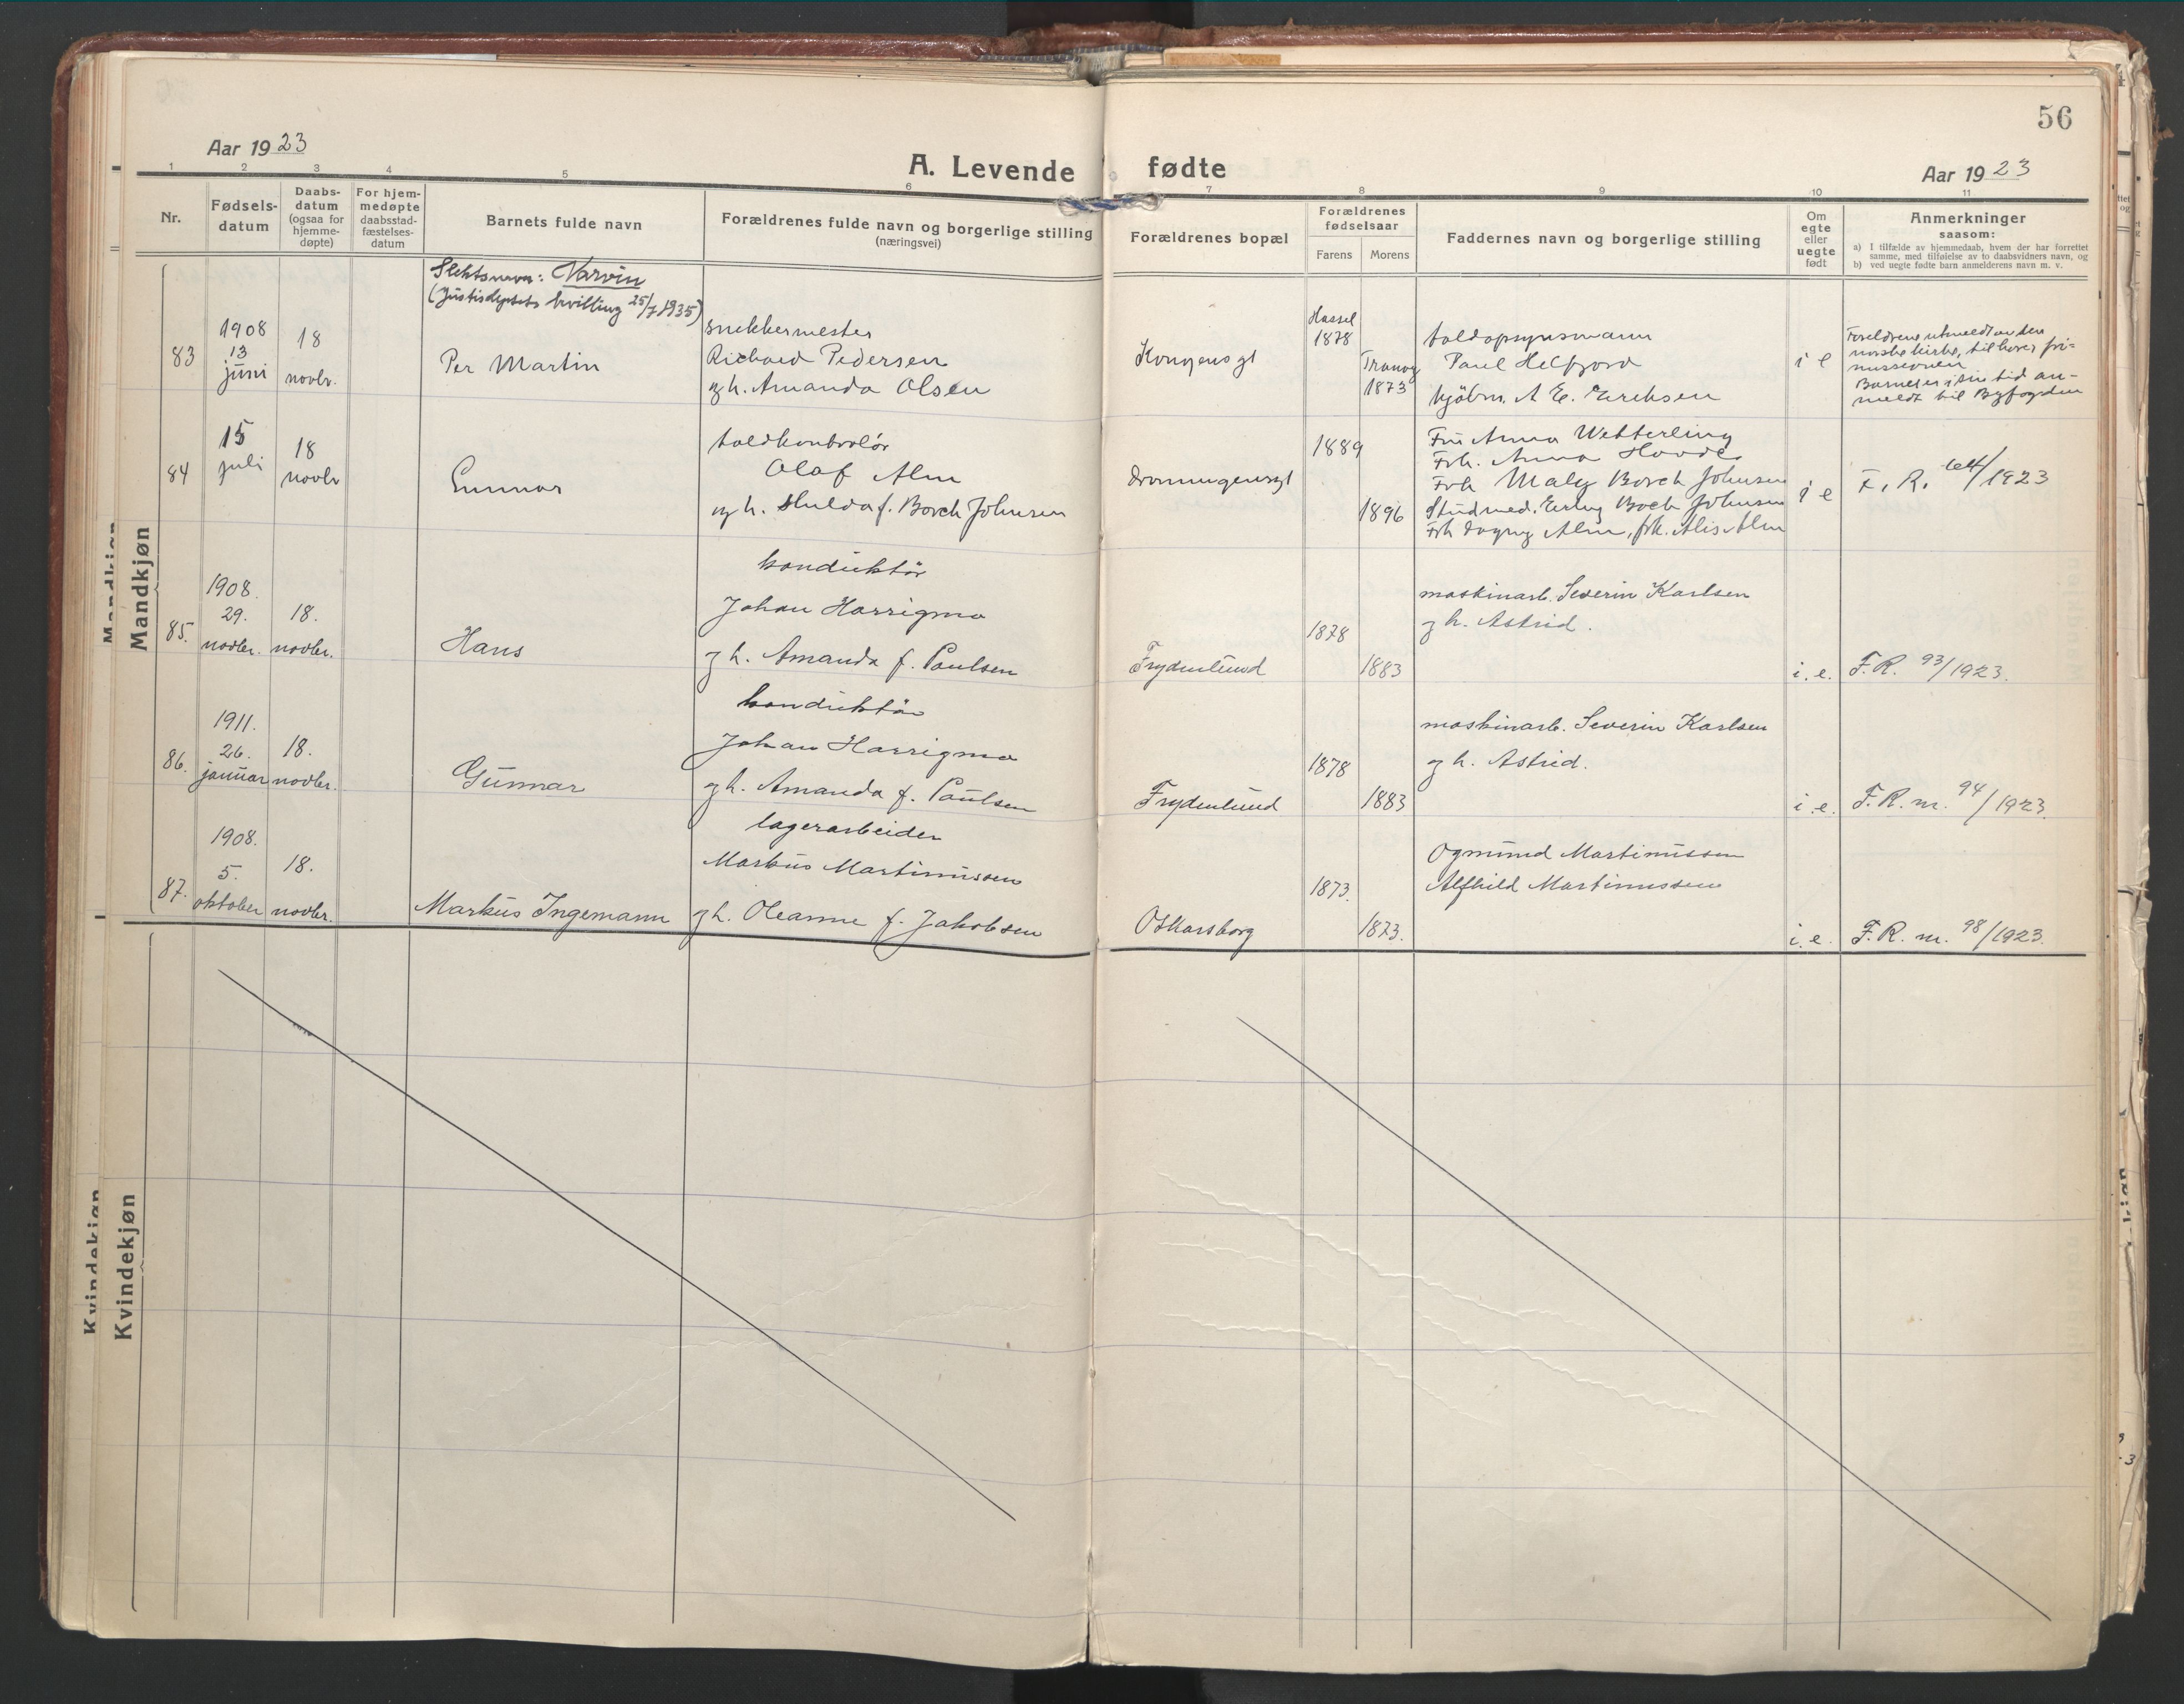 56
Aar 1923
A. Levende fødte
Aar 1923
1 2 3 4 5 6 7 8 9 10 11
Nr.
Fødsels-
datum
Daabs-
datum
(ogsaa for
hjemme-
døpte)
For hjem-
medøpte
daabsstad-
fæstelses-
datum
Barnets fulde navn
Forældrenes fulde navn og borgerlige stilling
(næringsvei)
Forældrenes bopæl
Forældrenes
fødselsaar
Farens
Morens
Faddernes navn og borgerlige stilling
Om
egte
eller
uegte
født
Anmerkninger
saasom:
a) I tilfælde av hjemmedaab, hvem der har forrettet
samme, med tilføielse av to daabsvidners navn, og
b) ved uegte fødte barn anmelderens navn m. v.
Mandkjøn
Slektsnavn: Varvin
(Justisdeptets bevilling 25/7 1935)
83
1908
13
juni
18
novbr.
Per Martin
snekkermester
Richard Pedersen
og h. Amanda Olsen
Kongensgt
Hassel
1878
Tranøy
1873
toldopsynsmann
Paul Helfjord
kjøbm. A E. Eriksen
i e
Foreldrene utmeldt av den
norske kirke, tilhører fri-
missionen
Barnet er i sin tid an-
meldt til Byfogden
84
15
juli
18
novbr
Gunnar
toldkontrolør
Olaf Alm
og h. Hulda f. Borch Johnsen
Dronningensgt
1889
1896
Fru Anna Wetterling
Frk. Anna Hovde
Frk Maly Borch Johnsen
Stud med. Erling Borch Johnsen
Frk Dagny Alm, frk. Alis Alm
i e
F. R. /1923
85.
1908.
29.
novbr.
18.
novbr.
Hans
konduktør
Johan Harrigmo
og h. Amanda f. Paulsen
Frydenlund
1878
1883
maskinarb. Severin Karlsen
og h. Astrid.
i. e.
F. R. 93/1923.
86.
1911.
26.
januar
18.
novbr.
Gunnar
konduktør
Johan Harrigmo
og h. Amanda f. Paulsen
Frydenlund
1878
1883
maskinarb. Severin Karlsen
og h. Astrid.
i. e.
F. R. nr. 94/1923.
87.
1908.
5.
oktober
18.
novbr.
Markus Ingemann
lagerarbeider
Markus Martinussen
og h. Oleanne f. Jakobsen
Oskarsborg
1873.
1873.
Ogmund Martinussen
Alfhild Martinussen
i. e.
F. R. nr. 98/1923.
Kvindekjøn